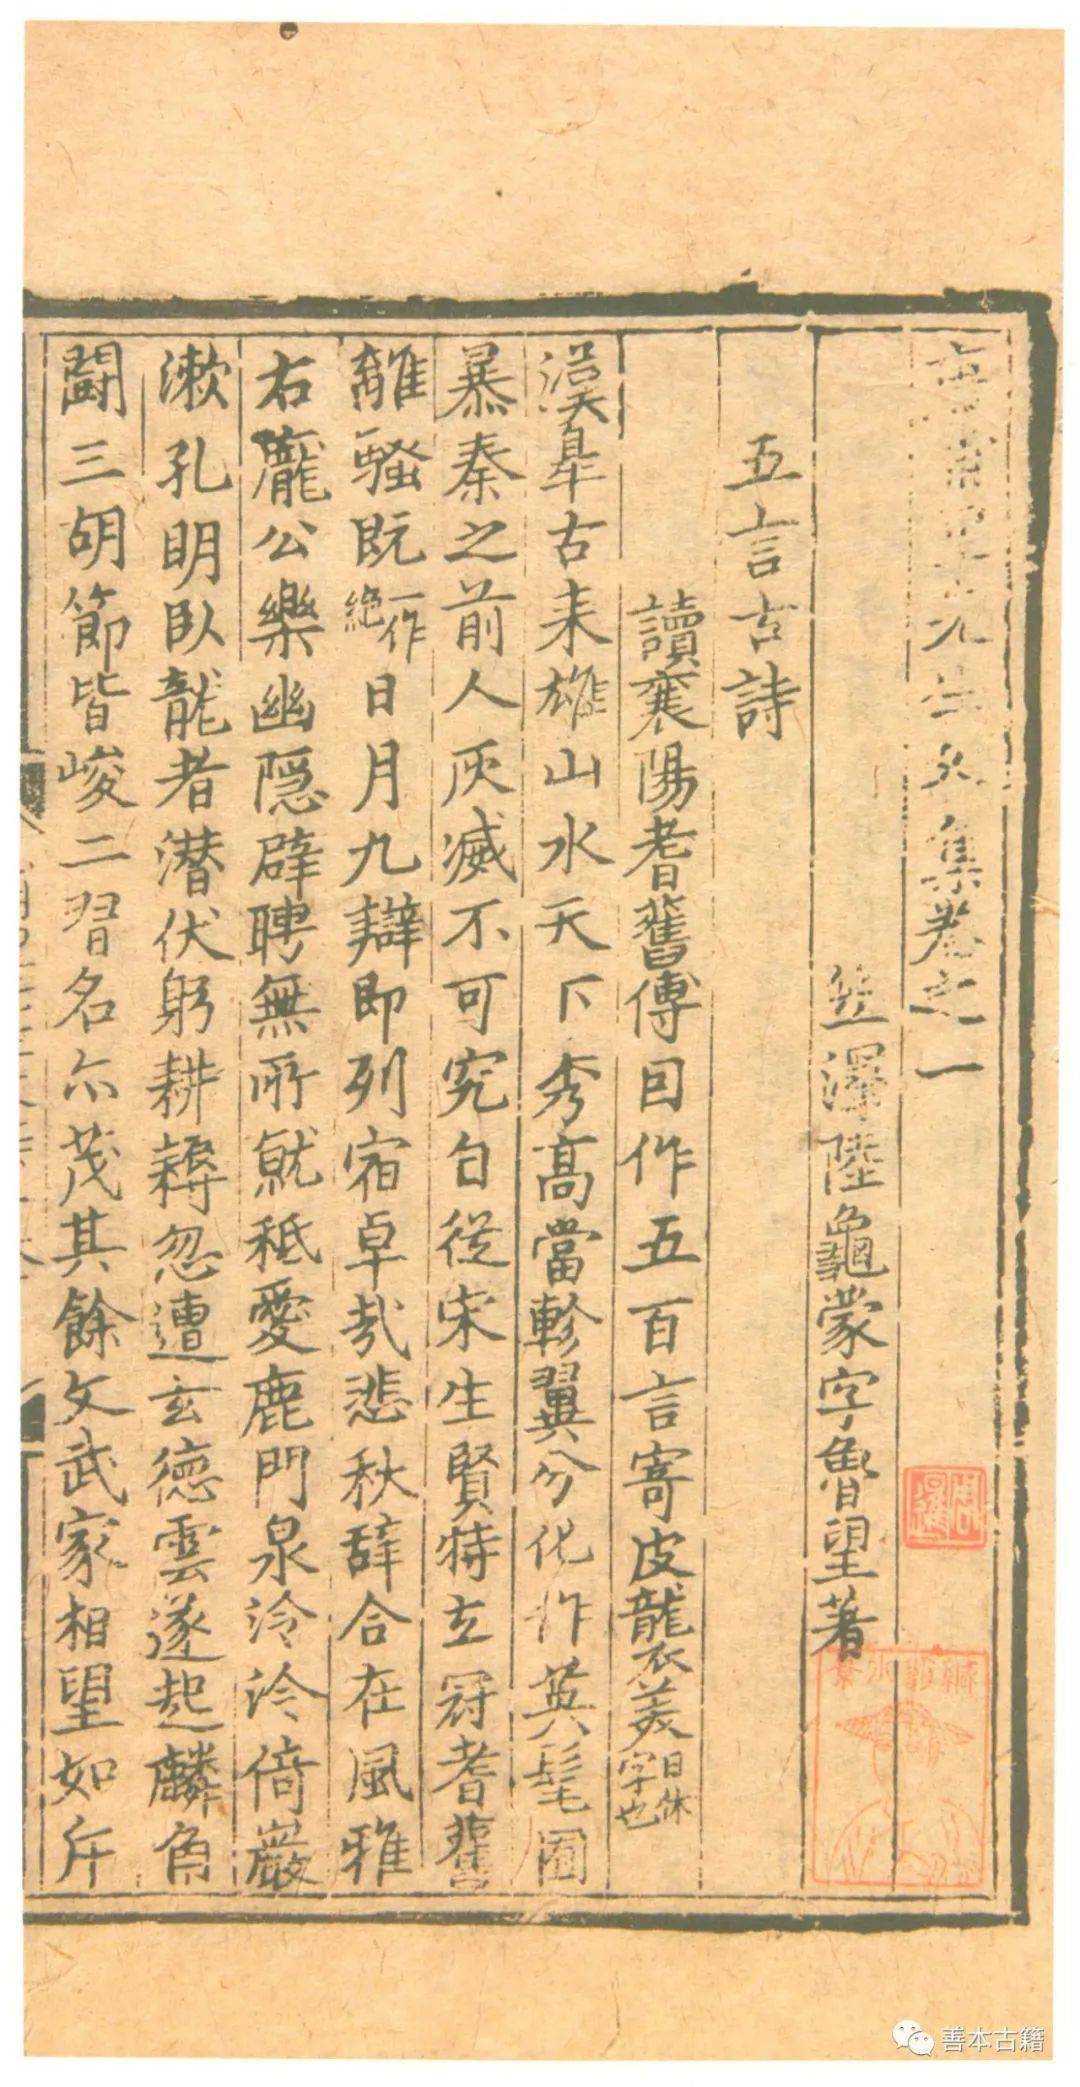 先生文集卷之一
笠澤陸龜蒙字魯望著
五言古詩
讀襄陽耆舊傳因作五百言寄皮襲美日休字也
漢皐古來雄山水天下秀高當軫翼分化作英髦囿
暴秦之前人灰滅不可究自從宋生賢特立冠耆舊
離騷既一作絶日月九辯即列宿卓哉悲秋辭合在風雅
右龐公樂幽隱辟聘無所就秪愛鹿門泉泠泠倚巖
漱孔明臥龍者潛伏躬耕耨忽遭玄德雲遂起麟角
鬪三胡節皆峻二習名亦茂其餘文武家相望如斥
周暹
善本古籍